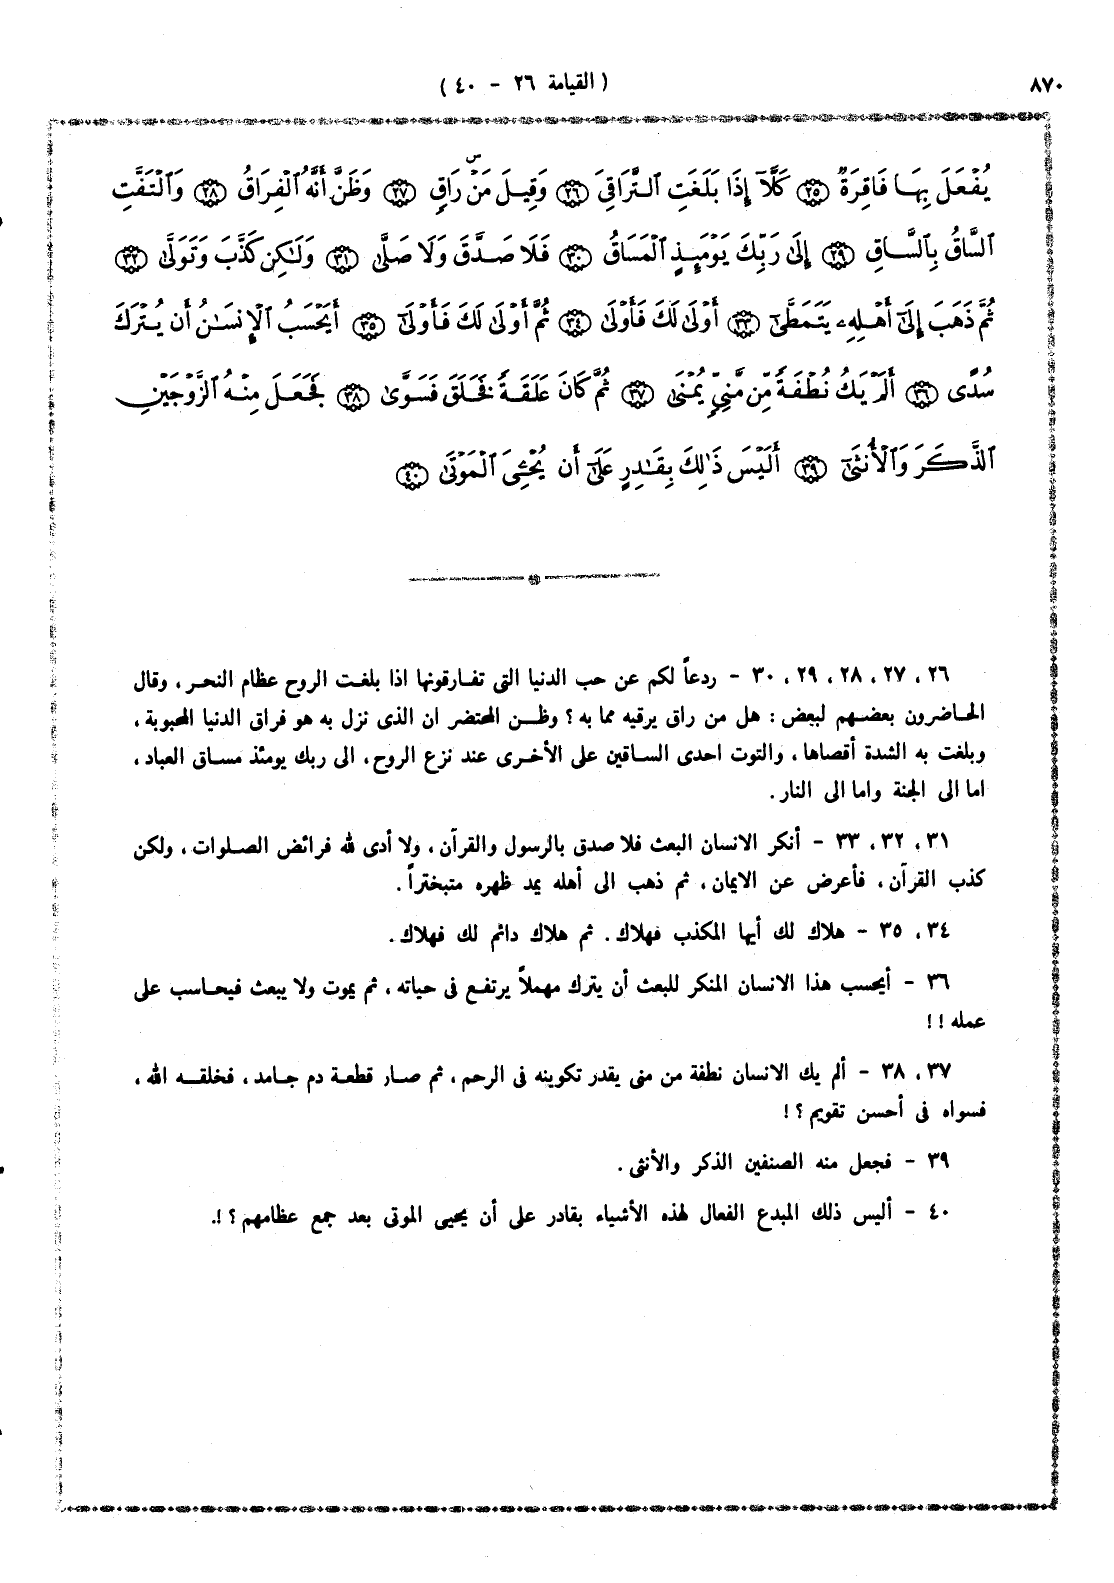 ٨٧٠
( القيامة ٢٦ - ٤٠ )
يُفْعَلَ بِهَا فَاقِرَةٌ ﴿٢٥﴾ كَلَّآ إِذَا بَلَغَتِ ٱلتَّرَاقِىَ ﴿٢٦﴾ وَقِيلَ مَنْ ۜ رَاقٍ ﴿٢٧﴾ وَظَنَّ أَنَّهُ ٱلْفِرَاقُ ﴿٢٨﴾ وَٱلْتَفَّتِ
ٱلسَّاقُ بِٱلسَّاقِ ﴿٢٩﴾ إِلَىٰ رَبِّكَ يَوْمَئِذٍ ٱلْمَسَاقُ ﴿٣٠﴾ فَلَا صَدَّقَ وَلَا صَلَّىٰ ﴿٣١﴾ وَلَٰكِن كَذَّبَ وَتَوَلَّىٰ ﴿٣٢﴾
ثُمَّ ذَهَبَ إِلَىٰٓ أَهْلِهِۦ يَتَمَطَّىٰٓ ﴿٣٣﴾ أَوْلَىٰ لَكَ فَأَوْلَىٰ ﴿٣٤﴾ ثُمَّ أَوْلَىٰ لَكَ فَأَوْلَىٰٓ ﴿٣٥﴾ أَيَحْسَبُ ٱلْإِنسَٰنُ أَن يُتْرَكَ
سُدًى ﴿٣٦﴾ أَلَمْ يَكُ نُطْفَةً مِّن مَّنِىٍّ يُمْنَىٰ ﴿٣٧﴾ ثُمَّ كَانَ عَلَقَةً فَخَلَقَ فَسَوَّىٰ ﴿٣٨﴾ فَجَعَلَ مِنْهُ ٱلزَّوْجَيْنِ
ٱلذَّكَرَ وَٱلْأُنثَىٰٓ ﴿٣٩﴾ أَلَيْسَ ذَٰلِكَ بِقَٰدِرٍ عَلَىٰٓ أَن يُحْـِۧىَ ٱلْمَوْتَىٰ ﴿٤٠﴾
٢٦ ، ٢٧ ، ٢٨ ، ٢٩ ، ٣٠ - ردعاً لكم عن حب الدنيا التى تفارقونها اذا بلغت الروح عظام النحر ، وقال
الحاضرون بعضهم لبعض : هل من راق يرقيه مما به ؟ وظن المحتضر ان الذى نزل به هو فراق الدنيا المحبوبة ،
وبلغت به الشدة أقصاها ، والتوت احدى الساقين على الأخرى عند نزع الروح ، الى ربك يومئذ مساق العباد ،
اما الى الجنة واما الى النار .
٣١ ، ٣٢ ، ٣٣ - أنكر الانسان البعث فلا صدق بالرسول والقرآن ، ولا أدى لله فرائض الصلوات ، ولكن
كذب القرآن ، فأعرض عن الايمان ، ثم ذهب الى أهله يمد ظهره متبختراً .
٣٤ ، ٣٥ - هلاك لك أيها المكذب فهلاك . ثم هلاك دائم لك فهلاك .
٣٦ - أيحسب هذا الانسان المنكر للبعث أن يترك مهملاً يرتفع فى حياته ، ثم يموت ولا يبعث فيحاسب على
عمله ! !
٣٧ ، ٣٨ - ألم يك الانسان نطفة من منى يقدر تكوينه فى الرحم ، ثم صار قطعة دم جامد ، فخلقه الله ،
فسواه فى أحسن تقويم ؟ !
٣٩ - فجعل منه الصنفين الذكر والأنثى .
٤٠ - أليس ذلك المبدع الفعال لهذه الأشياء بقادر على أن يحيى الموتى بعد جمع عظامهم ؟ ! .